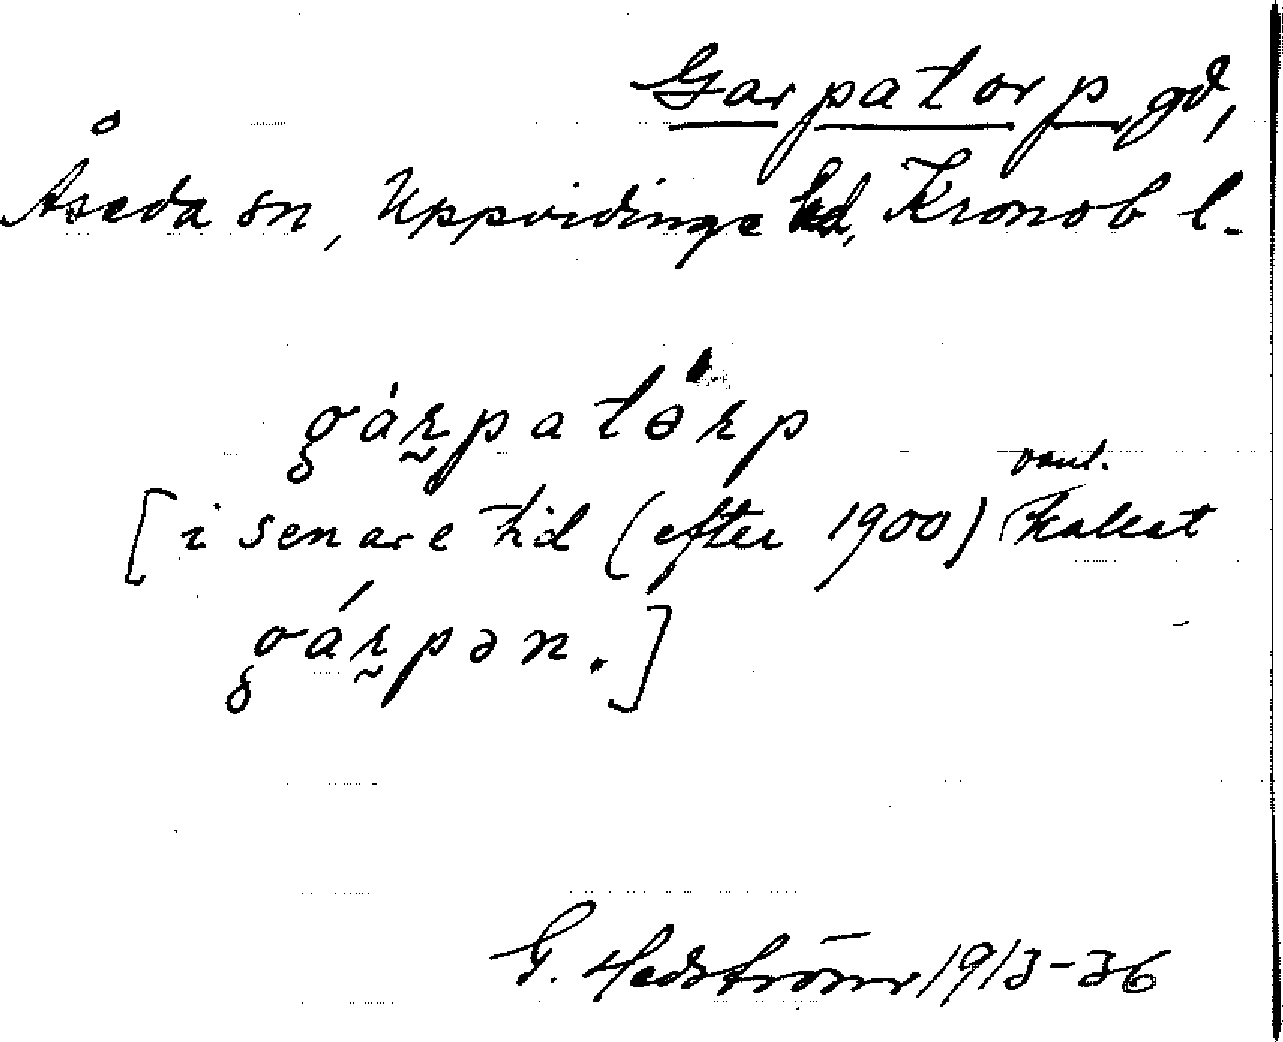 Garpatorp gd,
Åseda sn, Uppvidinge hd, Kronob l.
gárpatərp
[i senare tid (efter 1900) vanl. kallat
gárpən.]
G. Hedström 1913-36